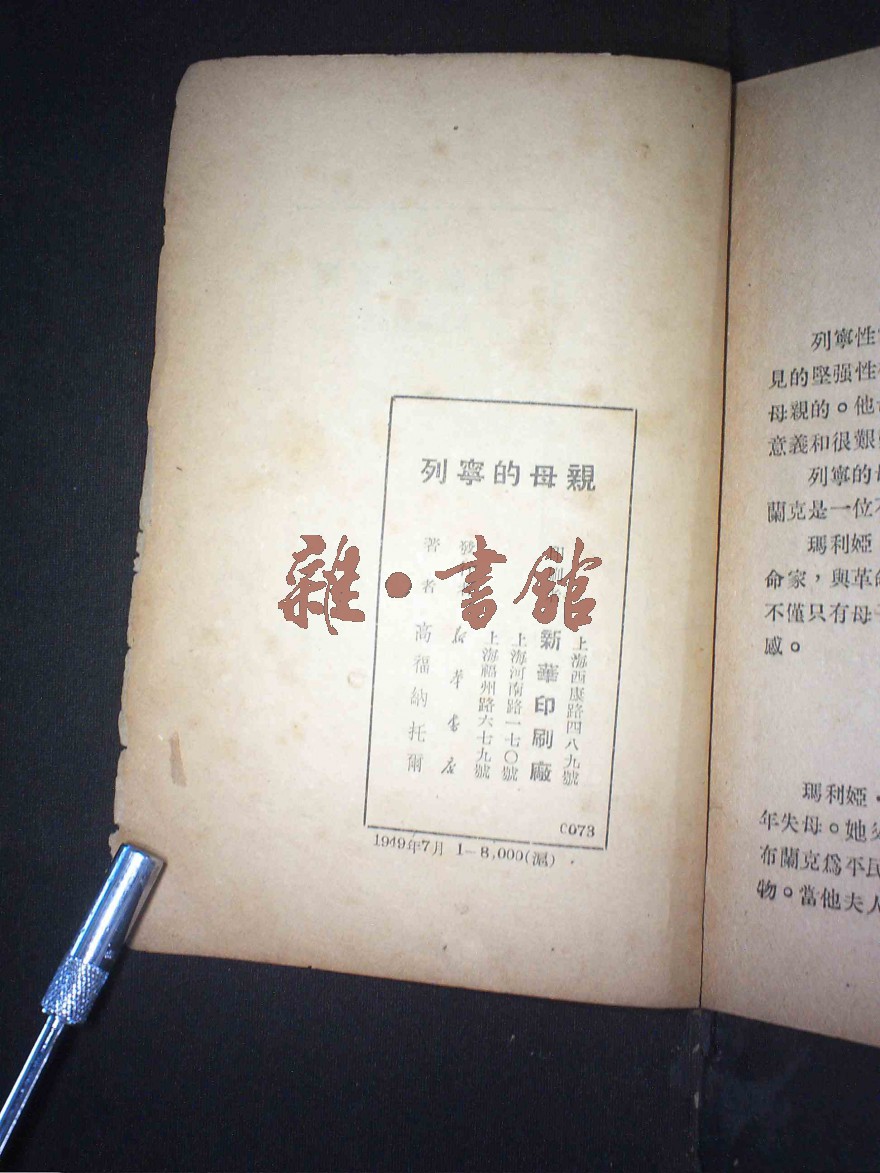 列寧的母親
著者 高福納托爾
發 新華書店
上海福州路六七九號
上海河南路一七〇號
新華印刷廠
上海西康路四八九號
C073
1949年7月 1—8,000(滬)
雜·書館
列寧性
見的堅强性
母親的。他
意義和很艱
列寧的
蘭克是一位不
瑪利婭
命家，與革命
不僅只有母子
感。
瑪利婭·
年失母。她父
布蘭克爲平民
物。當他夫人